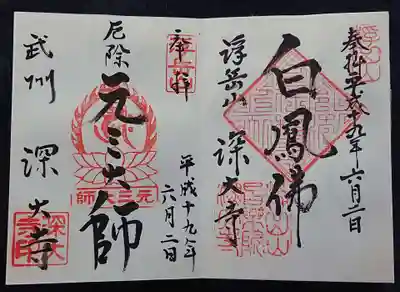 奉拝 平成十九年六月二日
白鳳佛
浮岳山 深大寺
奉拝
平成十九年
六月二日
厄除 元三大師
元三大師
武州 深大寺